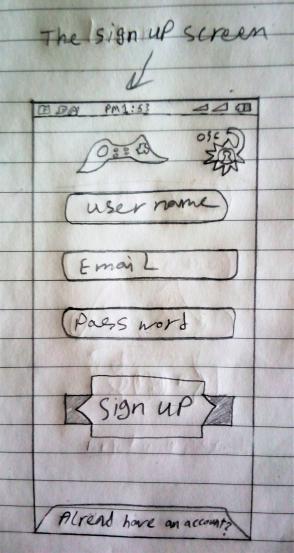 The sign up screen
PM 1:53
OSC
user name
Email
Pass word
Sign up
Alrend have an account?